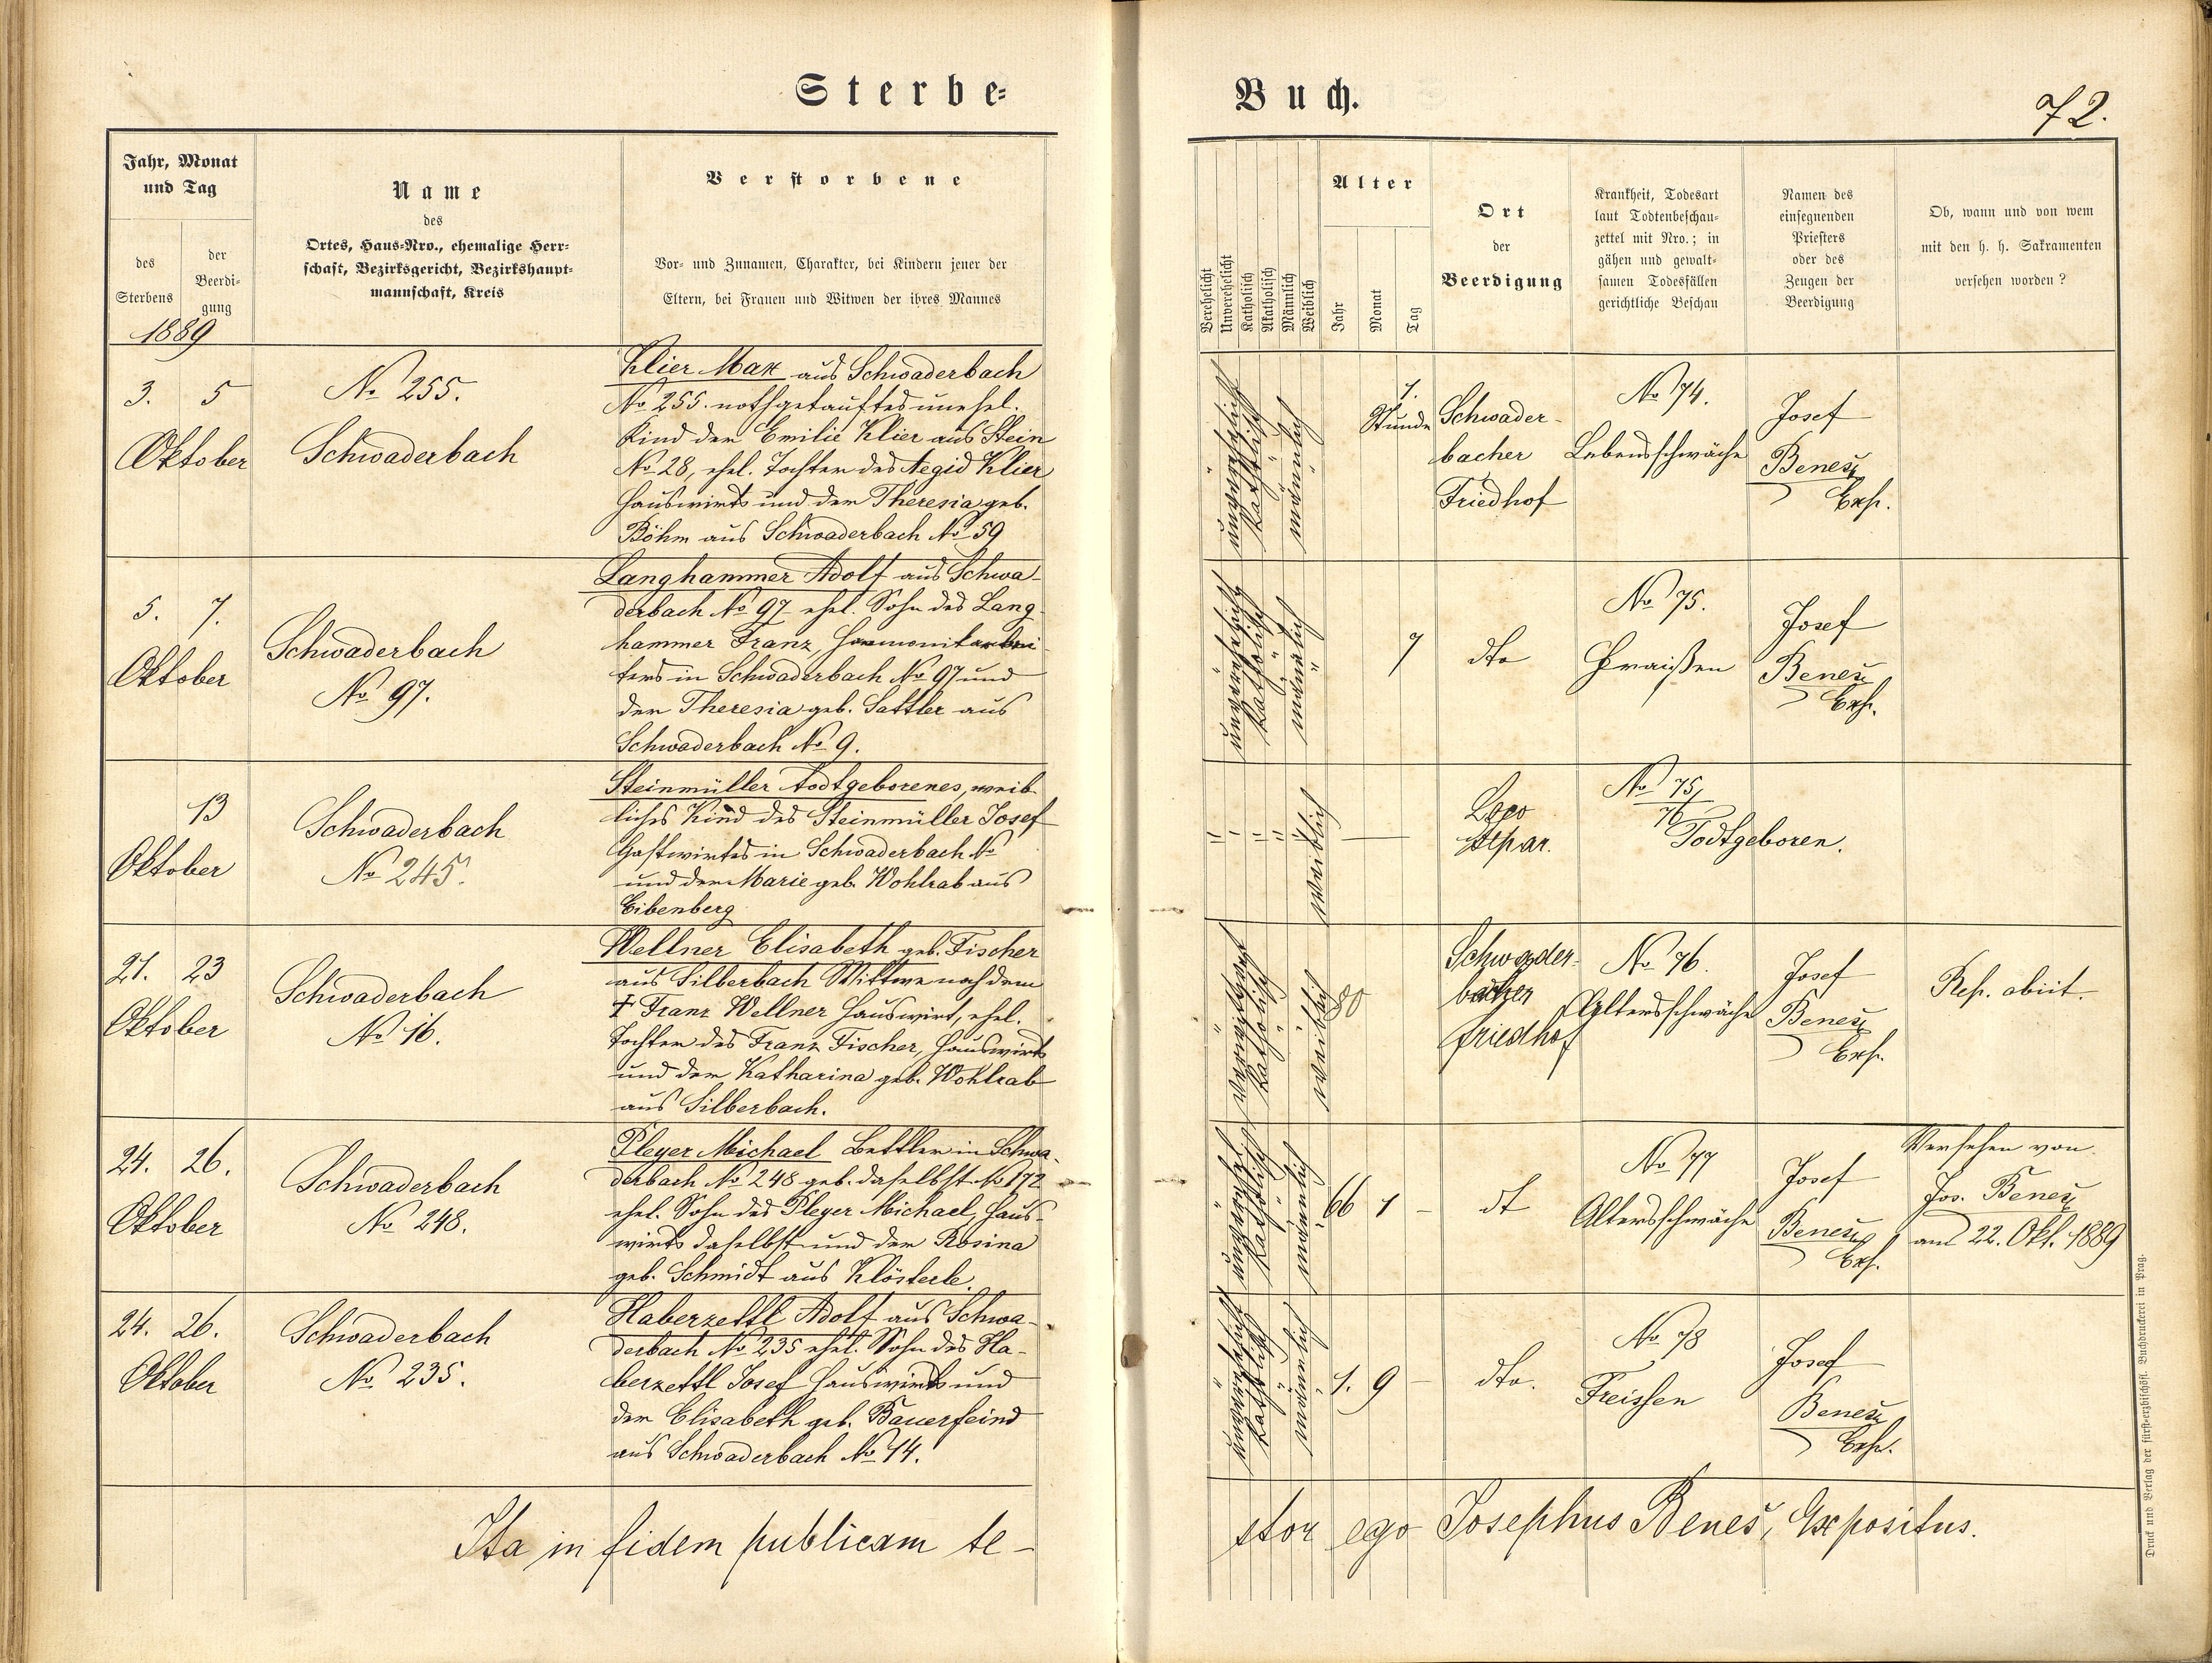 Sterbe-
Buch.
72.
Jahr, Monat
und Tag
des
Sterbens
der
Beerdi-
gung
1889
Name
des
Ortes, Haus-Nro., ehemalige Herr-
schaft, Bezirksgericht, Bezirkshaupt-
mannschaft, Kreis
Verstorbene
Vor- und Zunamen, Charakter, bei Kindern jener der
Eltern, bei Frauen und Witwen der ihres Mannes
Verehelicht
Unverehelicht
Katholisch
Akatholisch
Männlich
Weiblich
Alter
Jahr
Monat
Tag
Ort
der
Beerdigung
Krankheit, Todesart
laut Todtenbeschau-
zettel mit Nro.; in
gähen und gewalt-
samen Todesfällen
gerichtliche Beschau
Namen des
einsegnenden
Priesters
oder des
Zeugen der
Beerdigung
Ob, wann und von wem
mit den h. h. Sakramenten
versehen worden?
3. 5
Oktober
No 255.
Schwaderbach
Klier Max aus Schwaderbach
No 255. nothgetauftes unehel.
Kind der Emilie Klier aus Stein
No 28, ehel. Tochter des Aegid Klier
Hauswirts und der Theresia geb.
Böhm aus Schwaderbach No 59
unverehelicht
katholisch
männlich
1.
Stunde
Schwader-
bacher
Friedhof
No 74.
Lebensschwäche
Josef
Beneš
Exp.
5. 7.
Oktober
Schwaderbach
No 97.
Langhammer Adolf aus Schwa-
derbach No 97 ehel. Sohn des Lang-
hammer Franz, Harmonikaarbei-
ters in Schwaderbach No 97 und
der Theresia geb. Sattler aus
Schwaderbach No 9.
unverehelicht
katholisch
männlich
7
dto
No 75.
Fraißen
Josef
Beneš
Exp.
13
Oktober
Schwaderbach
No 245.
Steinmüller todtgeborenes, weib-
liches Kind des Steinmüller Josef
Gastwirtes in Schwaderbach No
und der Marie geb. Wohlrab aus
Eibenberg
weiblich
Loco
separ.
No 75/
76
Todtgeboren.
21. 23
Oktober
Schwaderbach
No 16.
Wellner Elisabeth geb. Fischer
aus Silberbach Wittwe nach dem
† Franz Wellner Hauswirt, ehel.
Tochter des Franz Fischer, Hauswirts
und der Katharina geb. Wohlrab
aus Silberbach.
katholisch
weiblich
80
Schwader-
bacher
Friedhof
No 76.
Altersschwäche
Josef
Beneš
Exp.
Rep. abiit.
24. 26.
Oktober
Schwaderbach
No 248.
Pleyer Michael Bettler in Schwa-
derbach No 248 geb. daselbst No 172
ehel. Sohn des Pleyer Michael, Haus-
wirts daselbst und der Rosina
geb. Schmidt aus Klösterle.
unverehel.
katholisch
männlich
66 1 -
dt
No 77
Altersschwäche
Josef
Beneš
Exp.
Versehen von
Jos. Beneš
am 22. Okt. 1889
24. 26.
Oktober
Schwaderbach
No 235.
Haberzettl Adolf aus Schwa-
derbach No 235 ehel. Sohn des Ha-
berzettl Josef Hauswirts und
der Elisabeth geb. Bauerfeind
aus Schwaderbach No 14.
unverehelicht
katholisch
männlich
1. 9 -
dto.
No 78
Freissen
Josef
Beneš
Exp.
Ita in fidem publicam te-
stor ego Josephus Beneš, Expositus.
Druck und Verlag der fürst-erzbischöfl. Buchdruckerei in Prag.